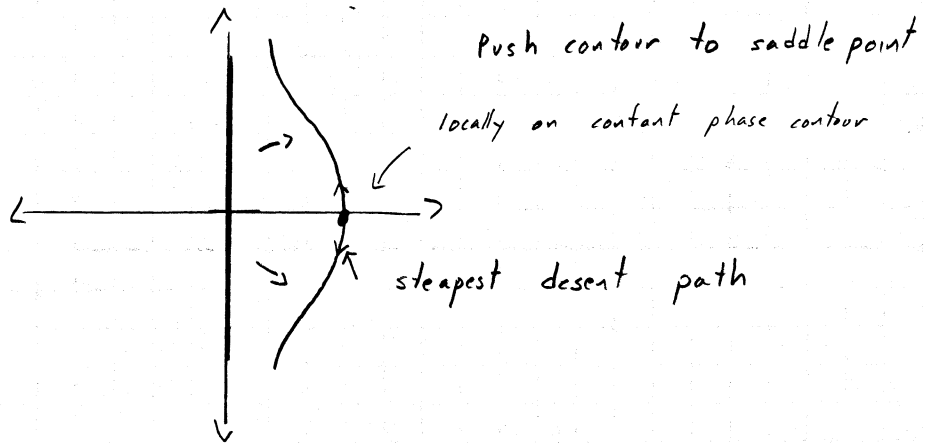 Push contour to saddle point
locally on contant phase contour
steapest desent path